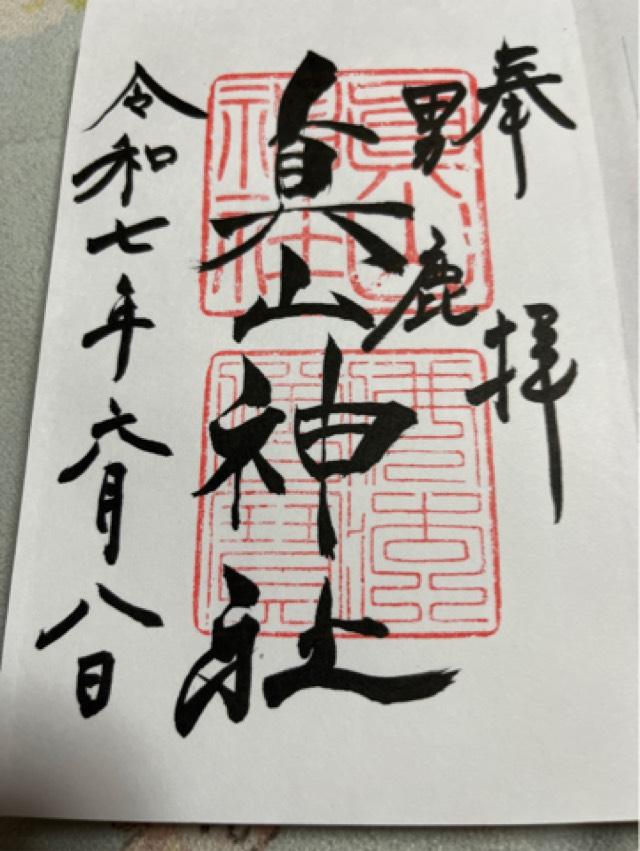 奉拝
男鹿
真山神社
令和七年六月八日
真山神社